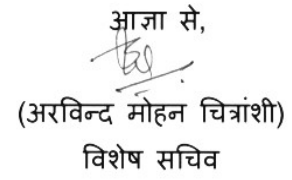 आज्ञा से,
(अरविन्द मोहन चित्रांशी)
विशेष सचिव